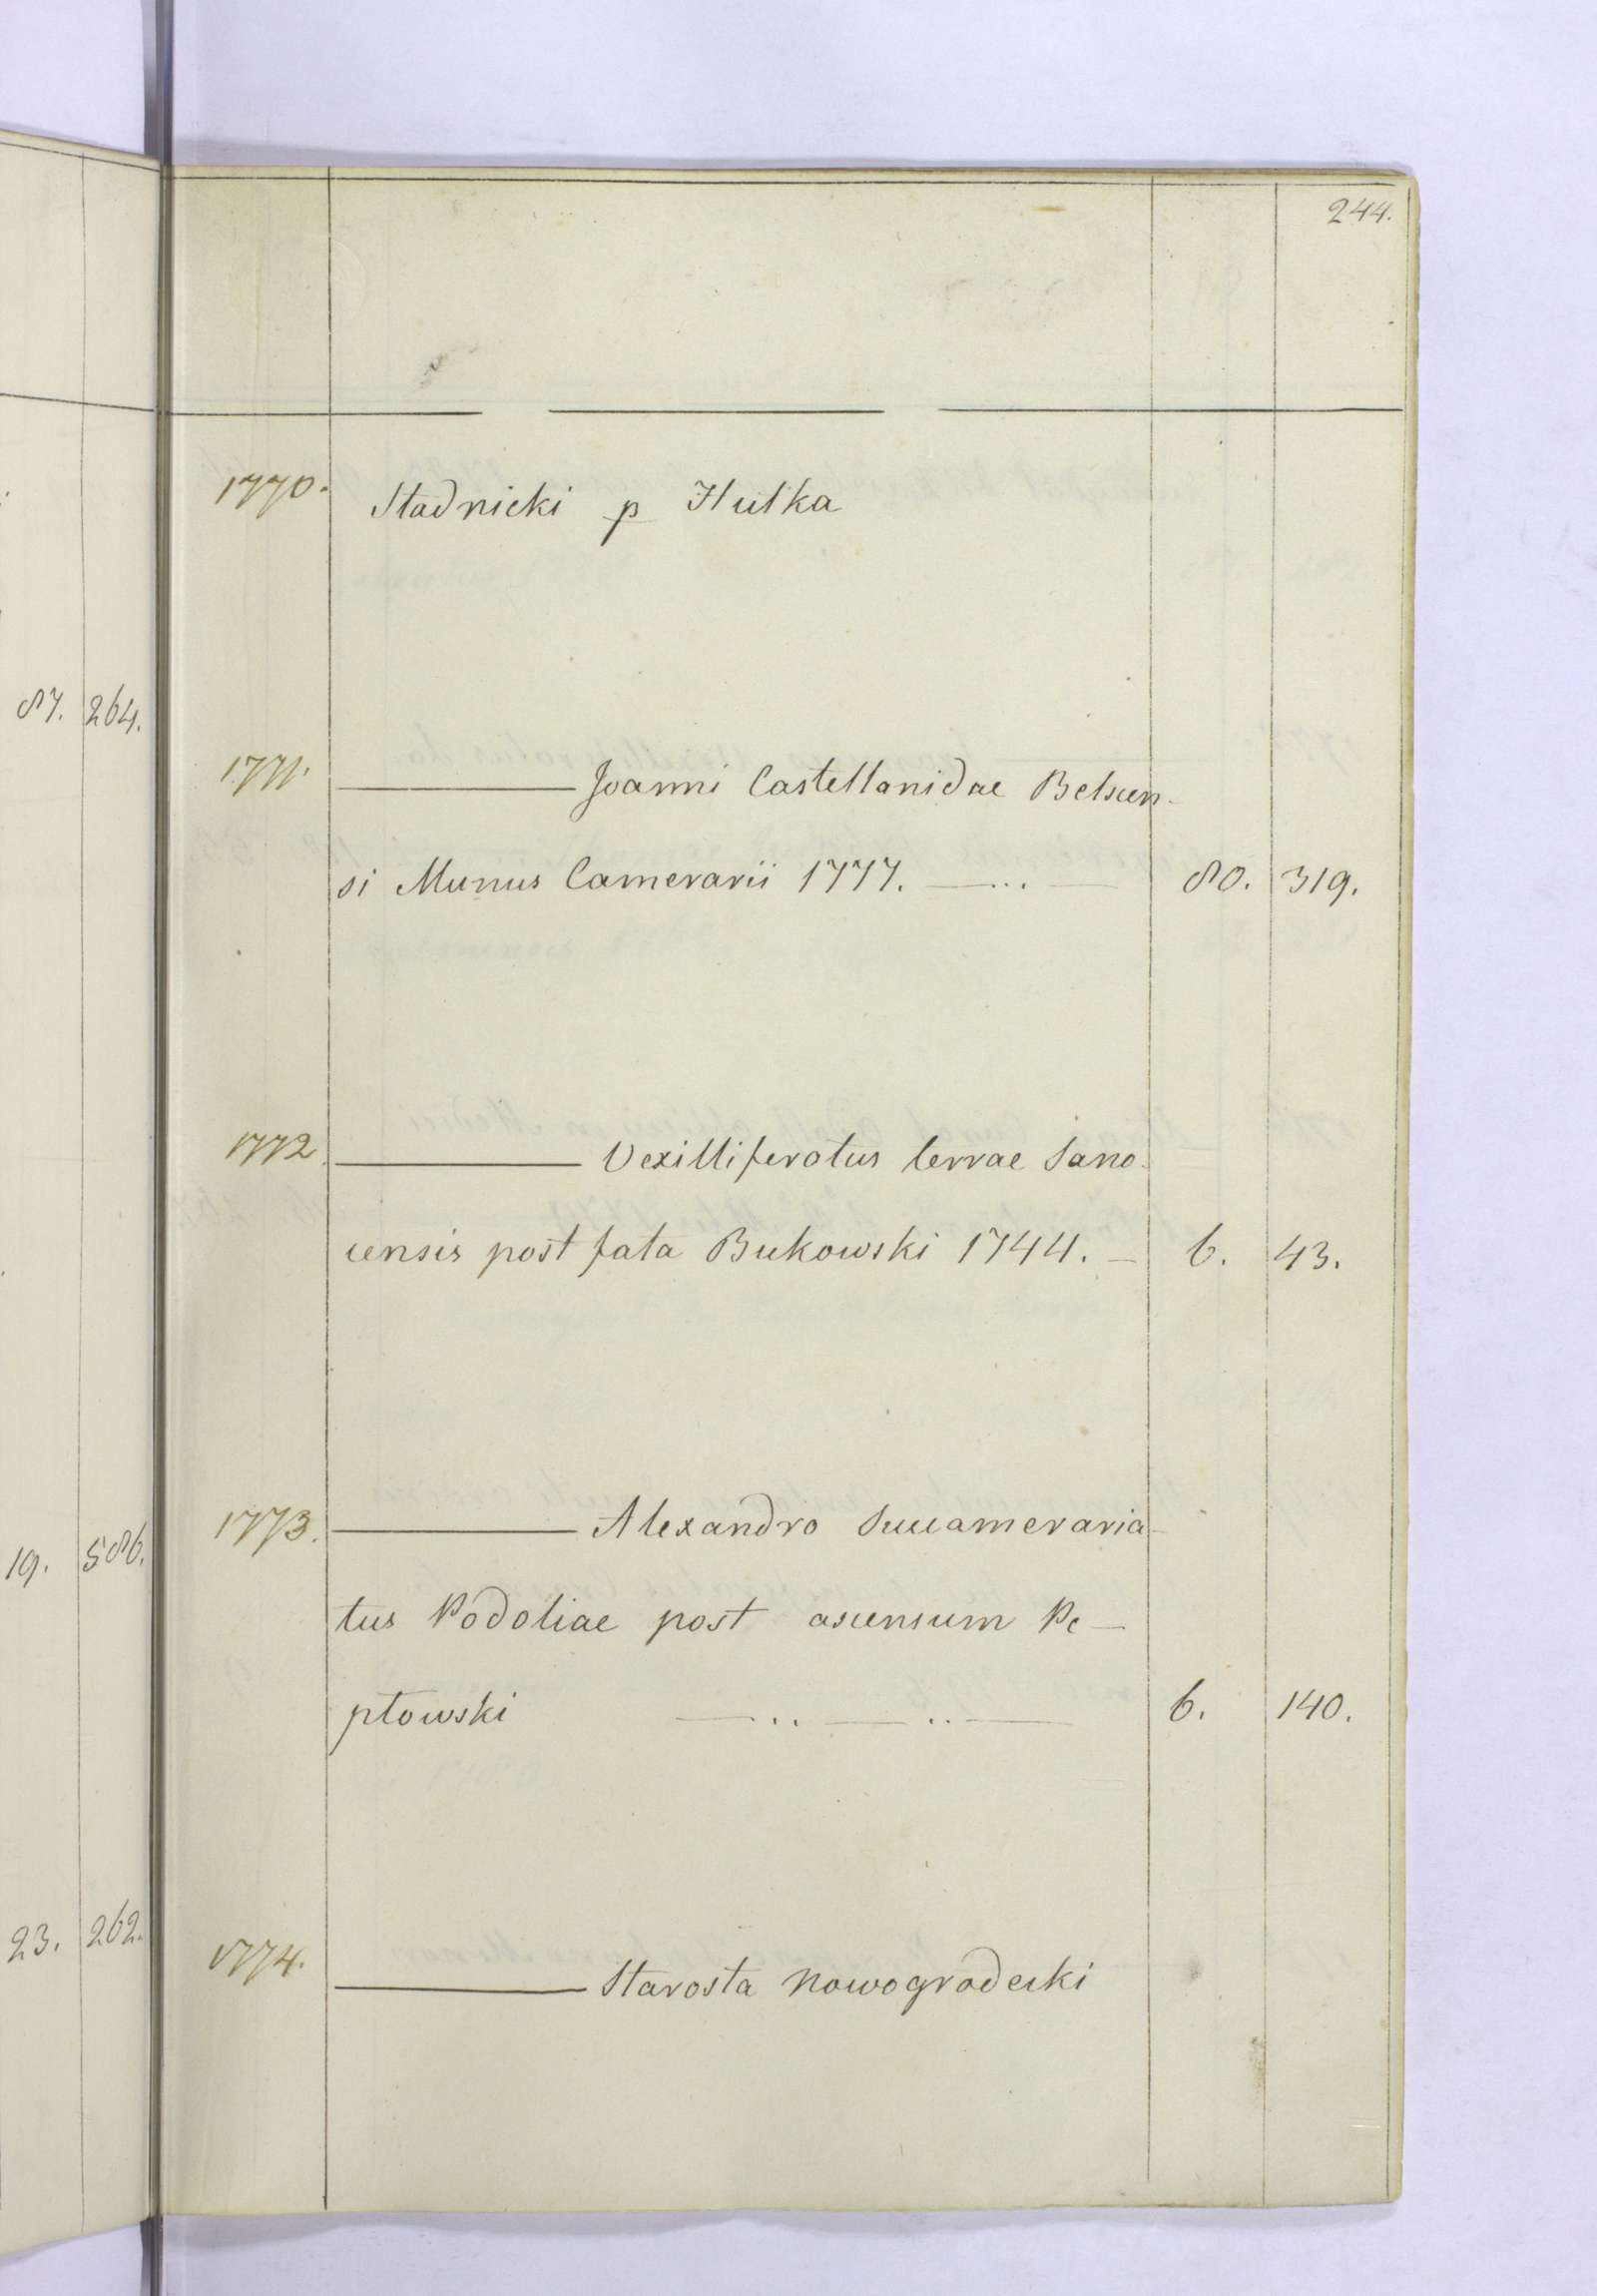 244.
87. 264.
19. 586.
23. 262.
1770. Stadnicki p Hutka
1771. ——— Joanni Castellanidae Belscen-
si Munus Camerarii 1777. —..— 80. 319.
1772 ——— Vexilliferatus terrae Sano-
censis post fata Bukowski 1744. — 6. 43.
1773. ——— Alexandro Succameraria-
tus Podoliae post ascensum Pe—
ptowski —..—..— 6. 140.
1774. ——— Starosta Nowogrodecki